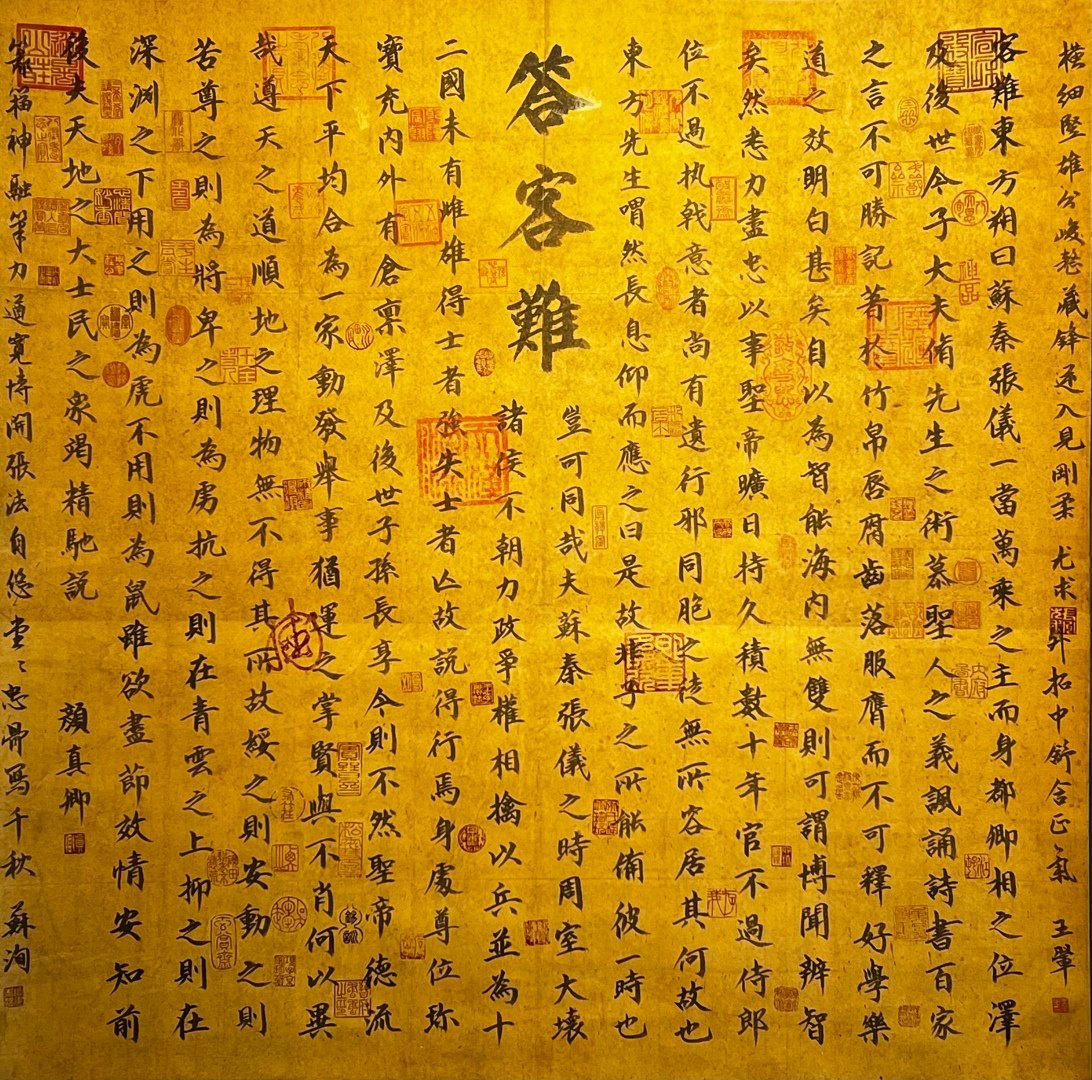 橫細豎雄公峻藏鋒逐入見剛柔 尤求
拓中舒含正氣 王翬
客難東方朔曰蘇秦張儀一當萬乘之主而身都卿相之位澤
及後世今子大夫脩先生之術慕聖人之義諷誦詩書百家
之言不可勝記著於竹帛唇腐齒落服膺而不可釋好學樂
道之效明白甚矣自以為智能海內無雙則可謂博聞辨智
矣然悉力盡忠以事聖帝曠日持久積數十年官不過侍郎
位不過执戟意者尚有遺行邪同胞之徒無所容居其何故也
東方先生喟然長息仰而應之曰是故非子之所能備彼一時也
答客難
豈可同哉夫蘇秦張儀之時周室大壞
諸侯不朝力政爭權相擒以兵並為十
二國未有雌雄得士者強失士者亡故說得行焉身處尊位珎
寶充內外有倉稟澤及後世子孫長享今則不然聖帝德流
天下平均合為一家動發舉事猶運之掌賢與不肖何以異
哉遵天之道順地之理物無不得其所故綏之則安動之則
苦尊之則為將卑之則為虜抗之則在青雲之上抑之則在
深渊之下用之則為虎不用則為鼠雖欲盡節效情安知前
後夫天地之大士民之眾竭精馳説
顏真卿
篆籀神融筆力遒寬博開張法自悠堂〻忠骨寫千秋 蘇洵